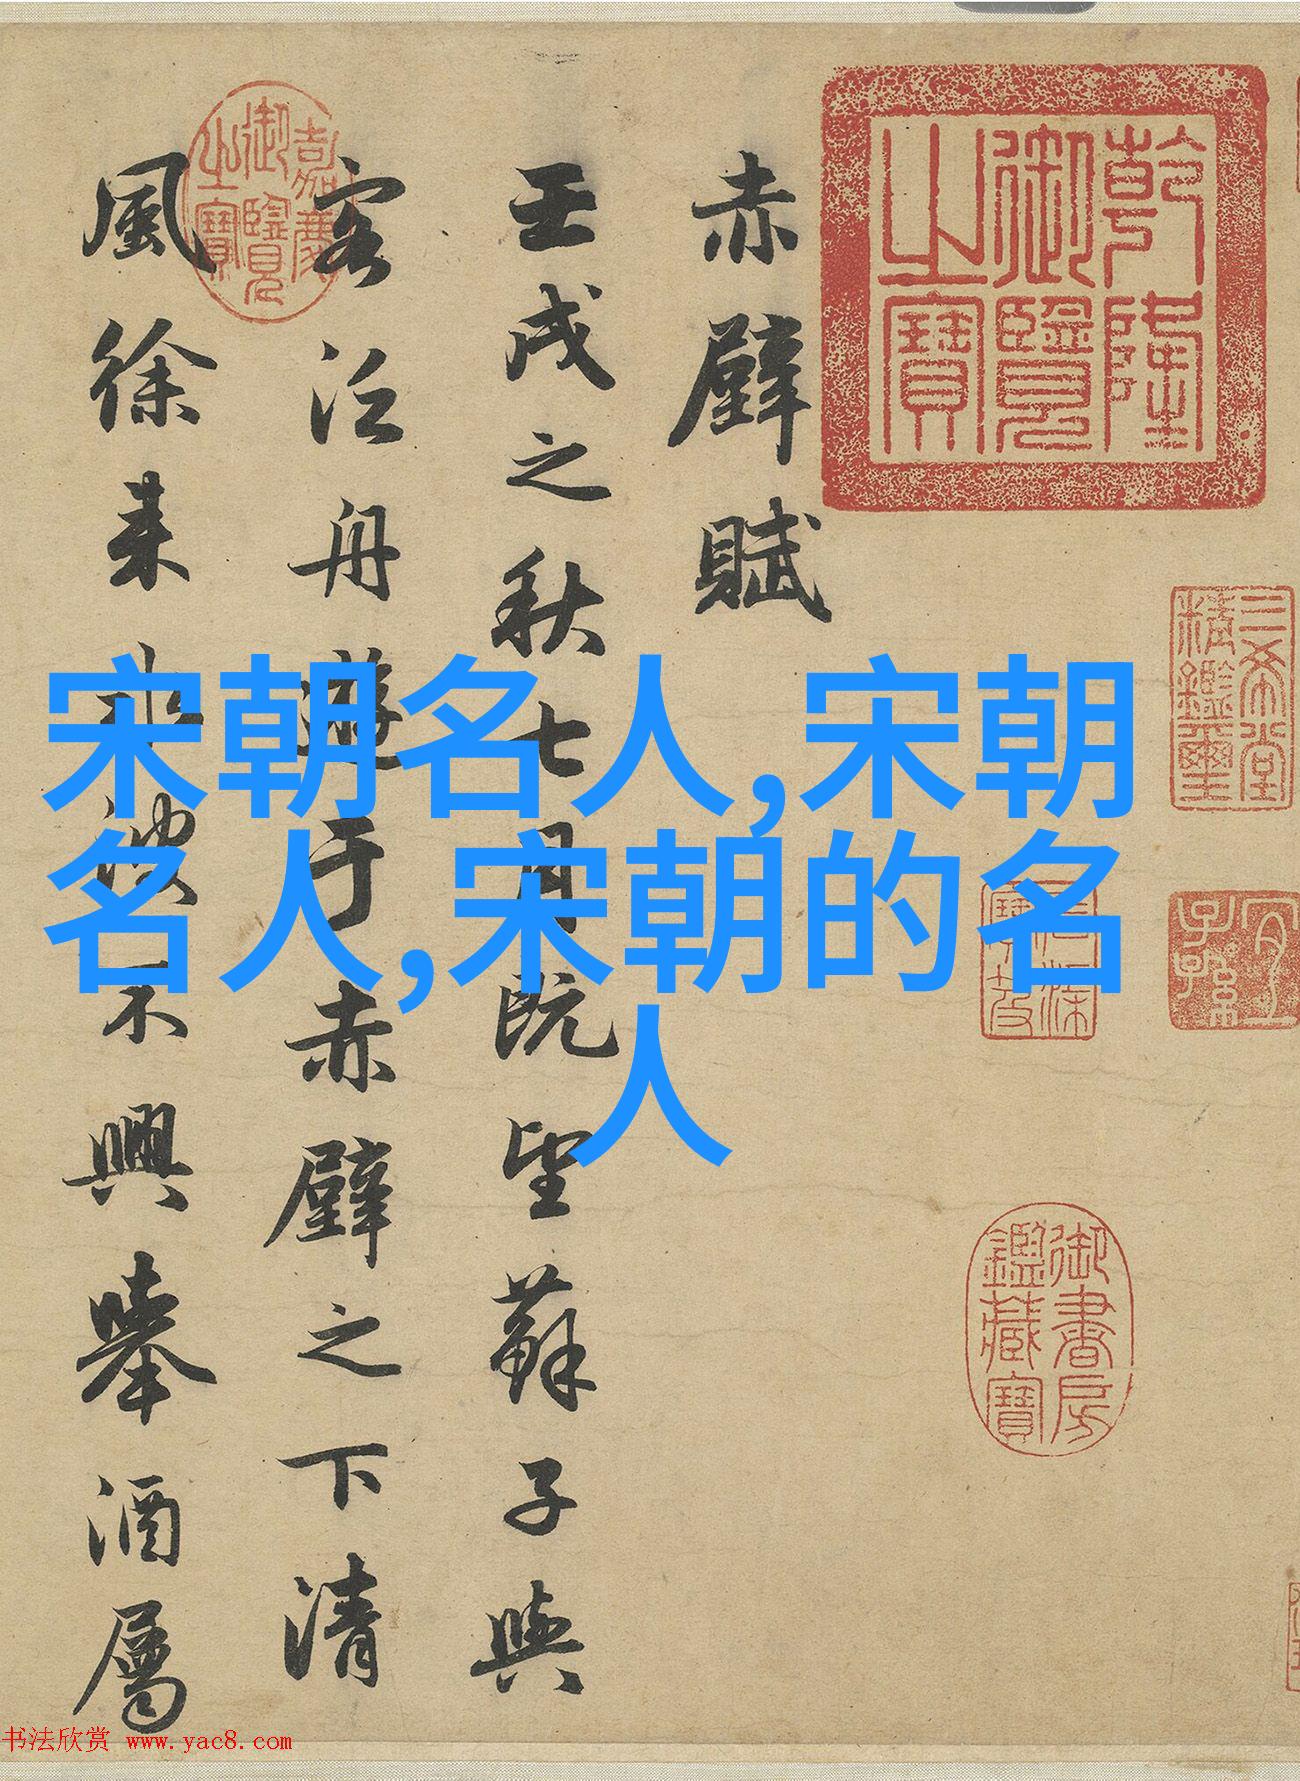 乾隆御覽之寶
三希堂精鑑璽
宜子孫
御書房鑑藏寶
赤壁賦
壬戌之秋七月既望蘇子與
客泛舟遊于赤壁之下清
風徐来水波不興舉酒屬
嘉慶御覽之寶
宋朝名人,宋朝
名人,宋朝的名
人
书法欣赏 www.yac8.com